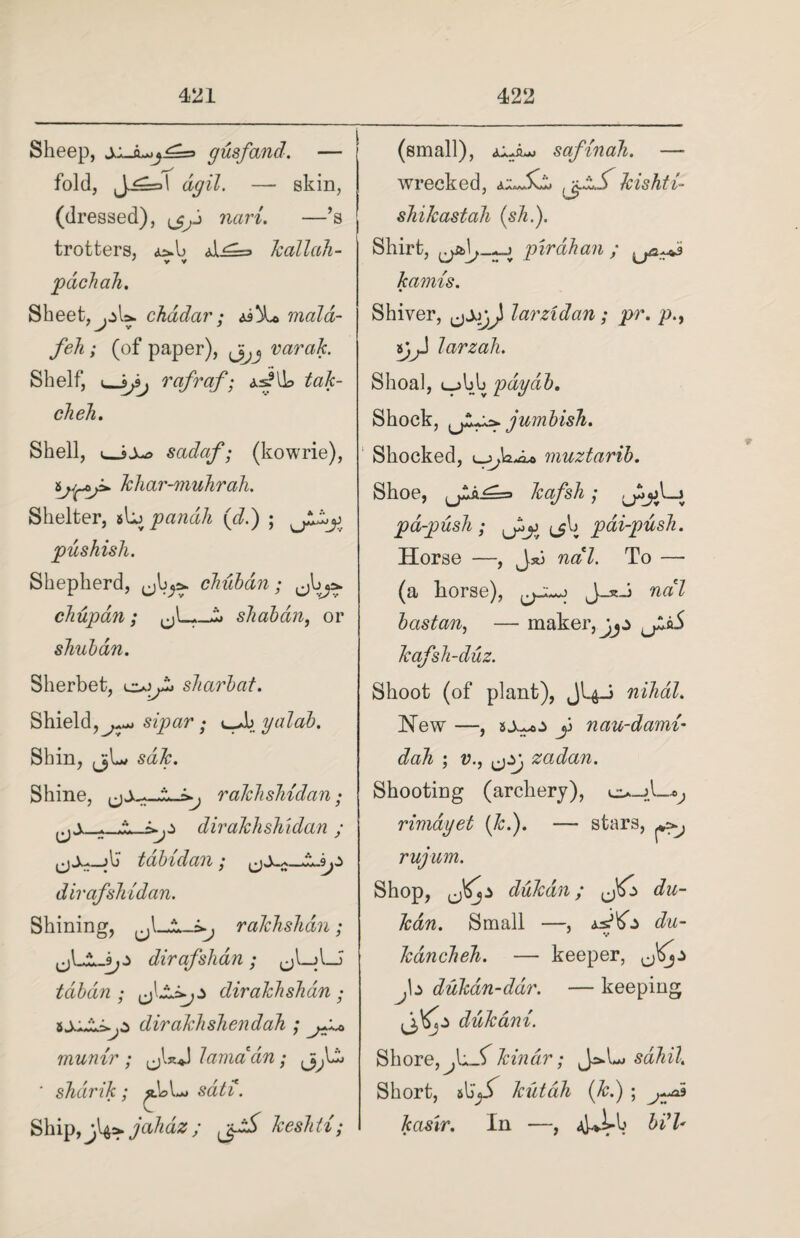 421
Sheep, گوسفند gúsfand. —
fold, آگل ágil. — skin,
(dressed), نری narí. —’s
trotters, کله پاچه kallah-
páchah.
Sheet, چادر chádar; ملافه malá-
feh; (of paper), ورق varak.
Shelf, رفرف rafraf; طاقچه tak-
cheh.
Shell, صدف sadaf; (kowrie),
خرمهره khar-muhrah.
Shelter, پناه panáh (d.) ; پوشش
púshish.
Shepherd, چوبان chúbán ; چوپان
chúpán ; شبان shabán, or
shubán.
Sherbet, شربت sharbat.
Shield, سپر sipar ; یلب yalab.
Shin, ساق sák.
Shine, رخشیدن rakhshídan ;
درخشیدن dirakhshídan ;
تابیدن tábídan ; درفشیدن
dirafshídan.
Shining, رخشان rakhshán ;
درفشان dirafshán ; تابان
tábán ; درخشان dirakhshán ;
درخشنده dirakhshendah ; منیر
munír ; لمعان lama'án ; شارق
shárik ; ساطع sáti'.
Ship, جهاز jaház ; کشتی keshtí ;
422
(small), سفینه safínah. —
wrecked, کشتی شکسته kishtí-
shikastah (sh.).
Shirt, پیراهن píráhan ; قمیص
kamís.
Shiver, لرزیدن larzídan ; pr. p.,
لرزه larzah.
Shoal, پایاب páyáb.
Shock, جنبش jumbish.
Shocked, مضطرب muztarib.
Shoe, کفش kafsh ; پاپوش
pá-púsh ; پای پوش pái-púsh.
Horse —, نعل na'l. To —
(a horse), نعل بستن na'l
bastan, — maker, کفش دوز
kafsh-dúz.
Shoot (of plant), نهال nihál.
New —, نو دمیده nau-damí-
dah ; v., زدن zadan.
Shooting (archery), رمایت
rimáyet (k.). — stars, رجوم
rujum.
Shop, دوکان dúkán ; دکان du-
kán. Small —, دکانچه du-
káncheh. — keeper, دوکان
دار dúkán-dár. — keeping
دوکانی dúkání.
Shore, کنار kinár ; ساحل sáhil.
Short, کوتاه kútáh (k.) ; قصیر
kasír. In —, بالجمله bi’l-